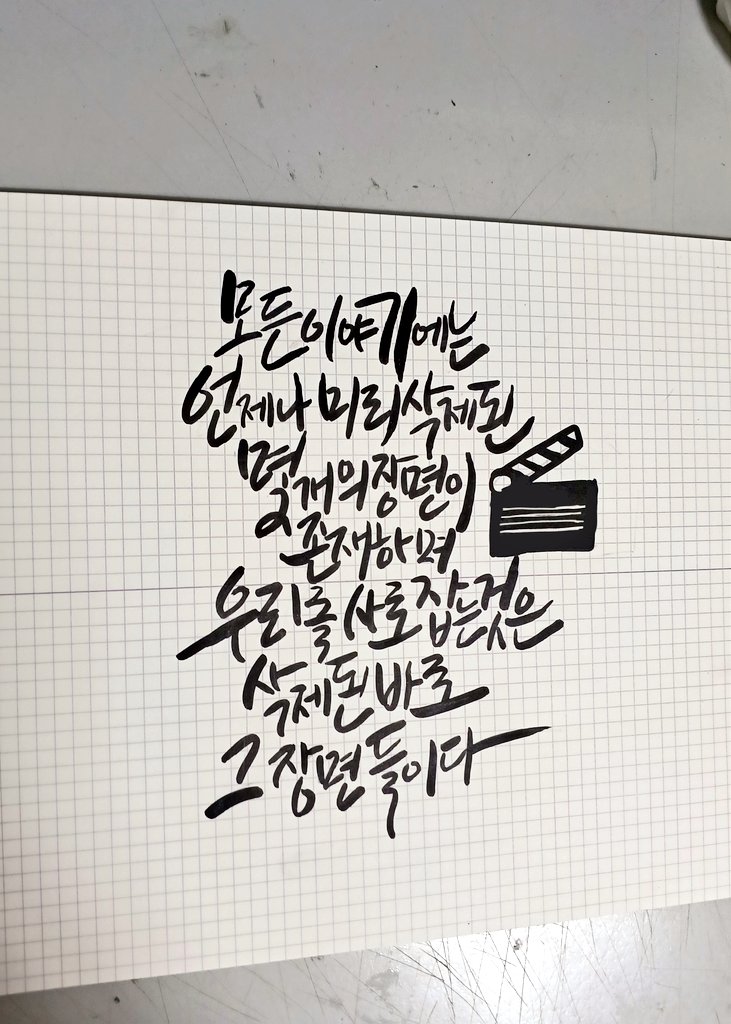 모든 이야기에는
언제나 미리 삭제된
몇 개의 장면이
존재하며
우리를 사로잡는 것은
삭제된 바로
그 장면들이다